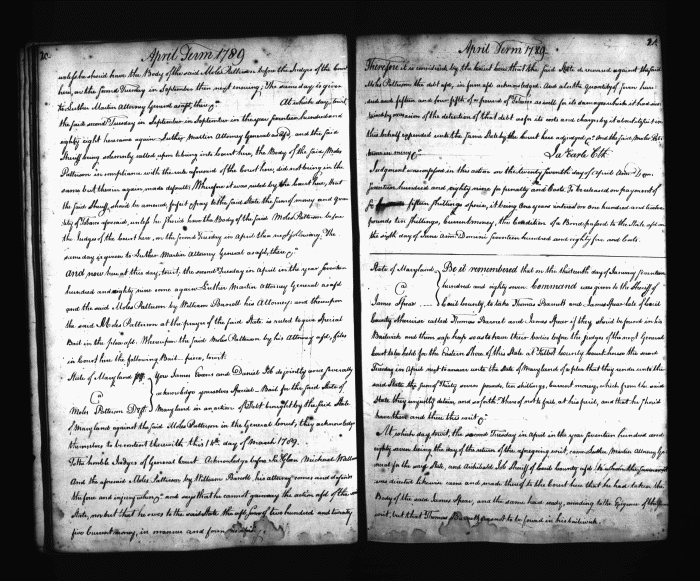 20.
April Term 1789
unless he should have the Body of the said Moles Patterson before the Judges of the Court
here, on the second Tuesday in September then next ensuing; The same day is given
to Luther Martin Attorney General aforesd, then &c. At which day, to wit,
the said second Tuesday in September in September in the year seventeen hundred and
eighty eight comes again Luther Martin Attorney General afsd, and the said
Sheriff being solemnly called upon to bring into Court here, the Body of the said Moles
Patterson in compliance with the rule aforesaid of the Court here, did not bring in the
same but therein again made default: Wherefore it was ruled by the Court here, that
the said Sheriff should be amerced, for the use of the said State the sum of money and quan
tity of Tobacco aforesaid, unless he should have the Body of the said Moles Patterson before
the Judges of the Court here, on the second Tuesday in April then next following: The
same day is given to Luther Martin Attorney General as afsd, then &c.
And now here at this day, to wit, the second Tuesday in April in the year seventeen
hundred and eighty nine come again Luther Martin Attorney General as afsd
and the said Moles Patterson by William Barroll his Attorney: and thereupon
the said Moles Patterson at the prayer of the said State is ruled to give Special
Bail in the plea afsd. Whereupon the said Moles Patterson by his Attorney afsd, files
in Court here the following Bail piece, to wit.
State of Maryland You James Evans and Daniel Job do jointly and severally
acknowledge yourselves Special Bail for the said State of
Moles Patterson Deft Maryland in an action of Debt brought by the said State
of Maryland against the said Moles Patterson in the General Court, they acknowledge
themselves to be content therewith this 18th day of March 1789.
To the honble Judges of General Court Acknowledged before
And the aforesaid Moles Patterson by William Barroll his attorney comes and defends
the force and injury when &c and says that he cannot gainsay the action afsd of the said
State, nor but that he owes to the said State the afsd, sum of two hundred and twenty
five current money, in manner and form as afsd
21.
April Term 1789
Therefore it is considered by the Court here that the said State do recover against the said
Moles Patterson the debt afs, in form afsd acknowledged. And also the quantity of seven hun
dred and fifteen and four fifths of a pound of Tobacco as well for its damages which it had sus
tained by occasion of the detention of that debt as for its costs and charges by it about its suit in
this behalf expended unto the said State by the Court here adjudged &c. And the said Moles Pat
terson in mercy &c. Ja Earle Clk
Judgment was confessed in this action on the twenty seventh day of April Anno Dom
seventeen hundred and eighty nine for penalty and Costs. To be released on payment of
fifteen shillings specie, it being one years interest on one hundred and twelve
pounds ten shillings, current money, the Condition of a Bond passed to the State afsd on
the sixth day of June Anno Domini seventeen hundred and eighty five and Costs.
State of Maryland, Be it remembered that on the thirteenth day of January seventeen
hundred and eighty seven Command was given to the Sheriff of
James Spear Cecil County, to take Thomas Barrett and James Spear late of Cecil
County otherwise called Thomas Barrett and James Spear if they should be found in his
Bailiwick and them safe keep so as to have their bodies before the Judges of the next General
Court to be held for the Eastern Shore of this State at Talbot County Court house the second
Tuesday in April next to answer unto the State of Maryland of a plea that they render unto the
said State the sum of Thirty seven pounds, ten shillings, current money, which from the said
State they unjustly detain, and so forth. Hereof not to fail at his peril, and that he should
have there and then this writ &c.
At which day, to wit, the second Tuesday in April in the year seventeen hundred and
eighty seven being the day of the return of the aforegoing writ, came Luther Martin Attorney Ge
neral for the said State, and Archibald Job Sheriff of Cecil County afsd to whom the
was directed likewise came and made thereof to the Court here that he had taken the
Body of the said James Spear, and the same had ready, according to the Exigence of the
writ, but that Thomas Barrett was not to be found in his bailiwick.